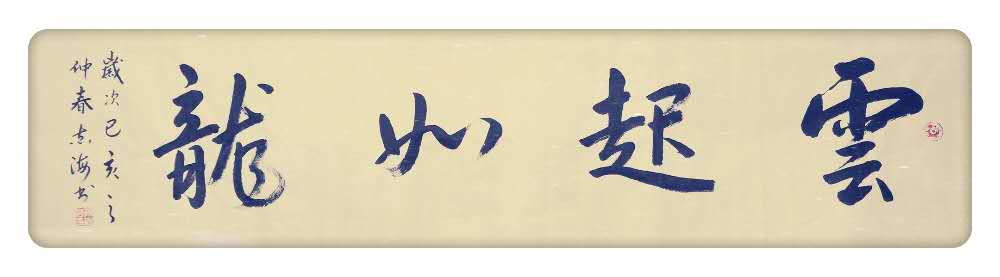 雲起如龍
歲次己亥之
仲春志海书